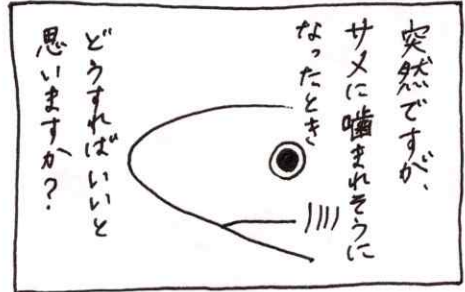 突然ですが、
サメに噛まれそうに
なったとき
どうすればいいと
思いますか?